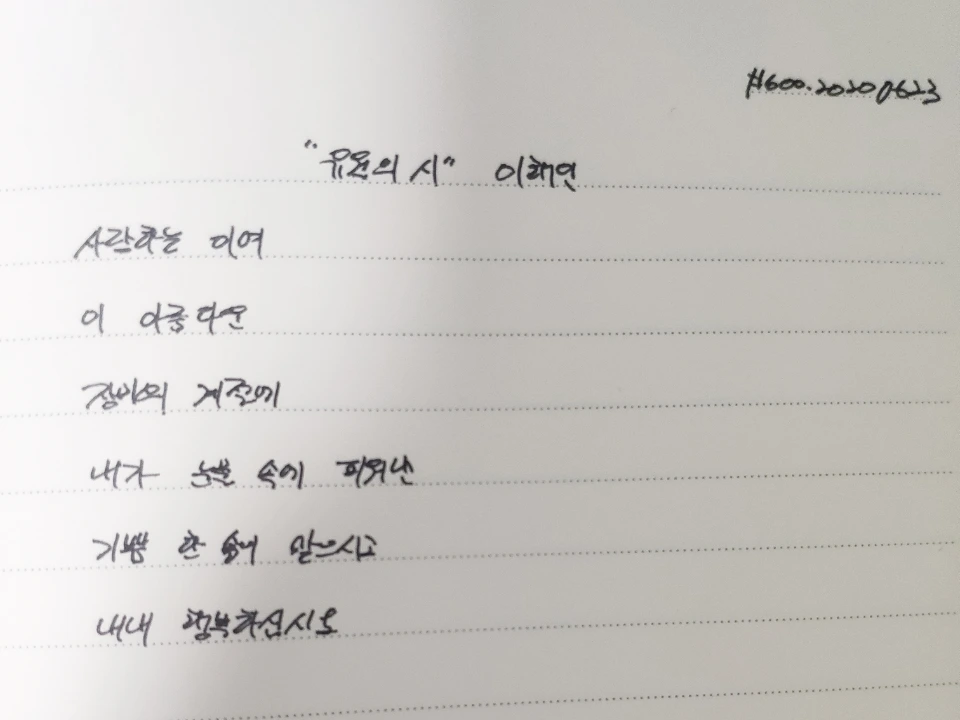 #600.20200623
"유월의 시" 이해인
사랑하는 이여
이 아름다운
장미의 계절에
내가 눈물 속에 피워낸
기쁨 한 송이 받으시고
내내 행복하십시오